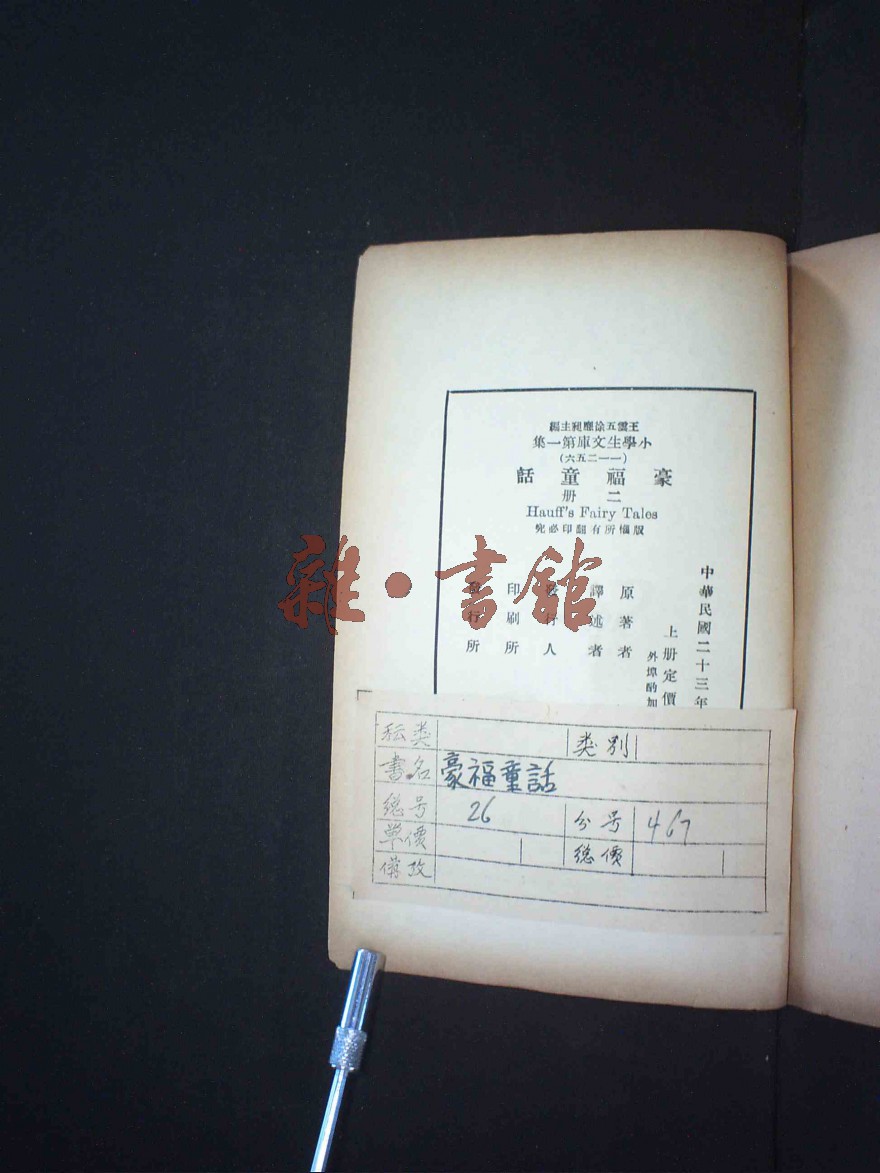 王雲五徐應昶主編
小學生文庫第一集
(一一二五六)
豪福童話
二册
Hauff's Fairy Tales
版權所有翻印必究
中華民國二十三年
上册定價
外埠酌加
原著者
譯述者
發行人
印刷所
發行所
雜·書館
秐类 类别
書名 豪福童話
總号 26 分号 467
單價 總價
備攷